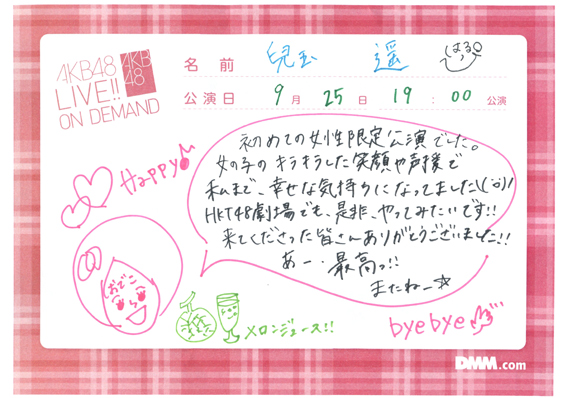 AKB48
LIVE!!
ON DEMAND
AKB
48
名前 兒玉 遥 はるっ
公演日 9月25日 19:00 公演
Happy♪
初めての女性限定公演でした。
女の子のキラキラした笑顔や声援で
私まで、幸せな気持ちになってました\(^o^)/
HKT48劇場でも、是非、やってみたいです!!
来てくださった皆さんありがとうございました!!
あー、最高っ!!
またねー☆
おでこ
メロンジュース!!
byebye
DMM.com